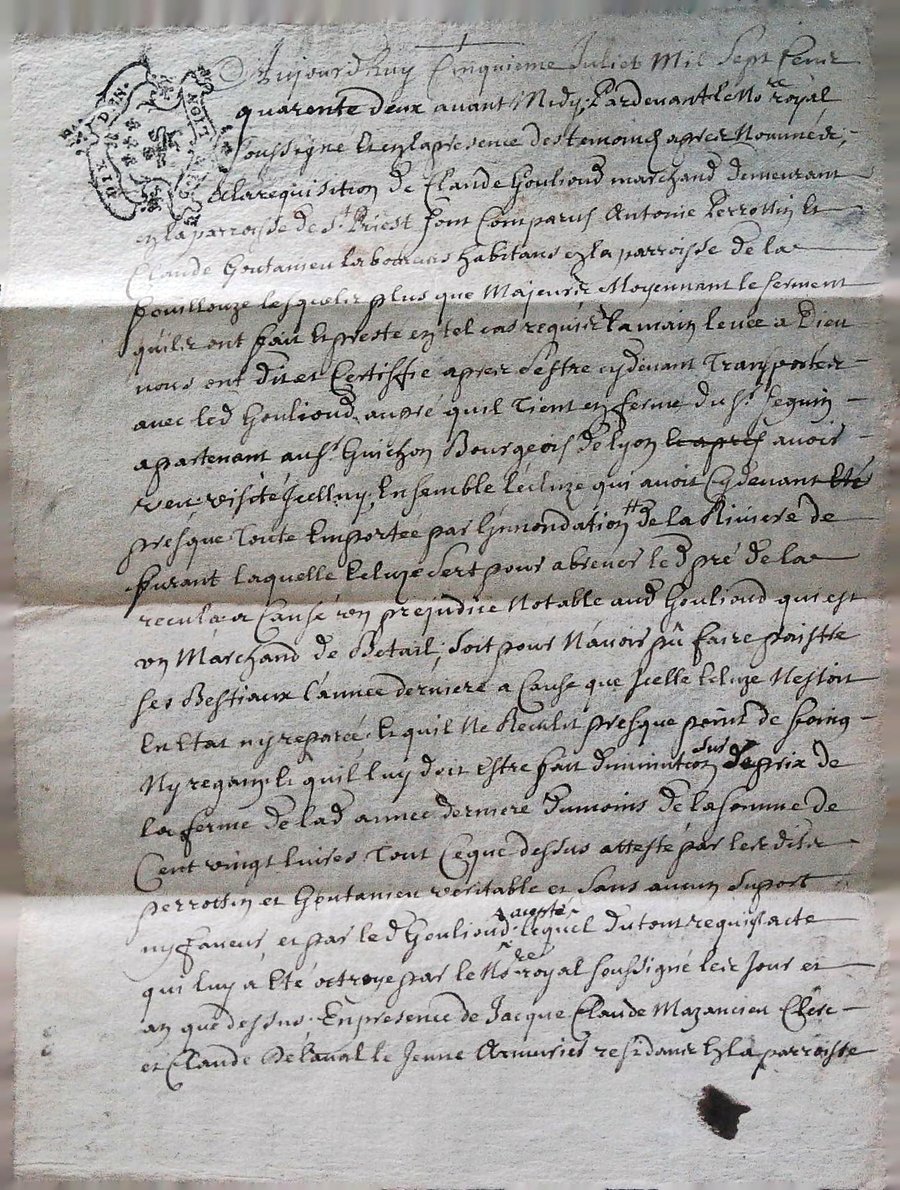 Aujourdhuy Cinquieme Juliet Mil Sept Cent
quarente deux avant Midy, Pardevant le No.re royal
soussigné et en la presence des temoins apres Nommés,
A la requisition de Claude Goulioud marchand demeurant
en la parroisse de St. Priest sont Comparus Antoine Perrottin et
Claude Goutanieu laboureurs habitans en la parroisse de la
fouillouze lesquels plus que Majeurs Moyennant le serment
quils ont fait et presté en tel cas requis la main levée a Dieu
nous ont dit et Certiffié apres s'estre cydevant Transportés
avec led Goulioud au pré quil Tient en ferme du Sr. Seguin
apartenant au Sr. Guichon Bourgeois de Lyon et apres avoir
veu visité Jcelluy, Ensemble l'ecluze qui avoit Cydevant eté
presque Toute Emportée par l'innondation de la Riviere de
furant laquelle Ecluze sert pour abreuer led pré de la
recula a Causé un prejudice Notable aud Goulioud qui est
un Marchand de Betail, soit pour N'avoir pû faire paistre
ses Bestiaux l'année derniere a Cause que Jcelle Ecluze Nestoit
En Etat ny reparée, et quil Ne Recuillit presque point de foing
Ny regain, et quil luy doit Estre fait diminution sur le prix de
la ferme de lad année derniere dumoins de la somme de
Cent vingt livres Tout Ceque dessus attesté par lesdits
perrottin et Goutanieu veritable et sans aucun suport
ny faveur, et par led Goulioud accepté lequel du tout requis acte
qui luy a Eté octroyé par le No.re royal soussigné les Jour et
an que dessus, En presence de Jacque Claude Mazancieu Clerc
et Claude Delaval le Jeune Armurier residans En la parroisse